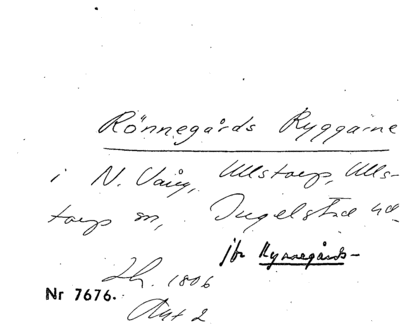 Rönnegårds Ryggarne
i N. Vång, Ullstorp, Ulls-
torp sn, Ingelstad hd
jfr Rynnegårds-
Lh. 1806
Nr 7676.
Akt 2